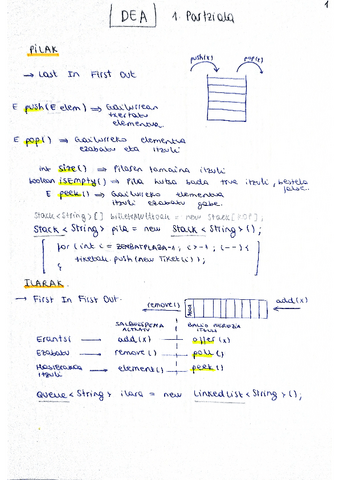 1
DEA 1. Partziala
PILAK
→ Last In First Out
push(x) pop()
E push(E elem) ⇒ Gailurrean
txertatu
elementua.
E pop() ⇒ Gailurreko elementua
ezabatu eta itzuli
int size() ⇒ Pilaren tamaina itzuli
boolean isEmpty() ⇒ Pila hutsa bada true itzuli, bestela
false.
E peek() ⇒ Gailurreko elementua
itzuli ezabatu gabe.
Stack<String>[] = new Stack[];
Stack<String> pila = new Stack<String>();
for (int i = -1; i>-1; i--) {
.push(new Tiket(i));
}
ILARAK.
→ First In First Out.
remove() add(x)
SALBUESPENA
ALTXATU
BALIO BEREZIA
ITZULI
Erantsi → add(x) → offer(x)
Ezabatu → remove() → poll()
Hasierakoa
itzuli → element() → peek()
Queue<String> ilara = new LinkedList<String>();